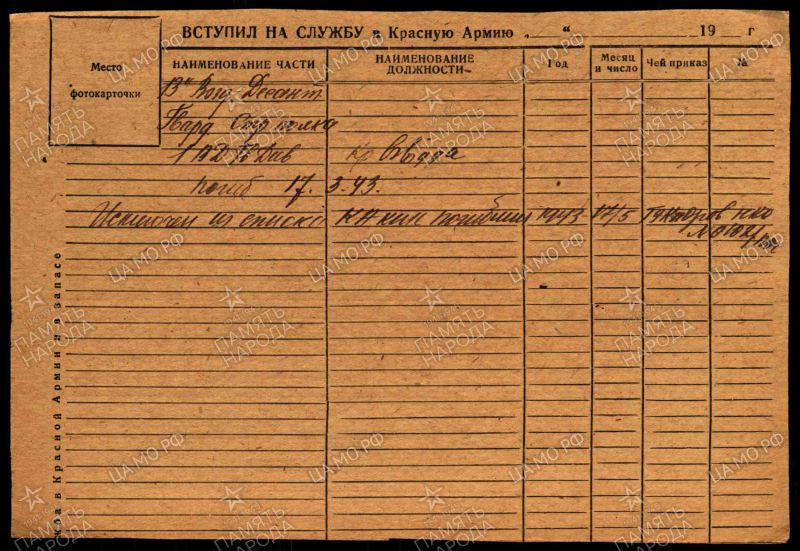 ВСТУПИЛ НА СЛУЖБУ в Красную Армию „ “ 19 г
Место
фотокарточки
НАИМЕНОВАНИЕ ЧАСТИ
НАИМЕНОВАНИЕ
ДОЛЖНОСТИ
Год
Месяц
и число
Чей приказ
№
13й Возд Десант
Гвард Стр полка
Кр взвода
погиб 17.3.43.
Исключен из списков КА как погибший 1943 17/5 НКО
ба в Красной Армии и в запасе
ЦАМО.РФ
ПАМЯТЬ
НАРОДА